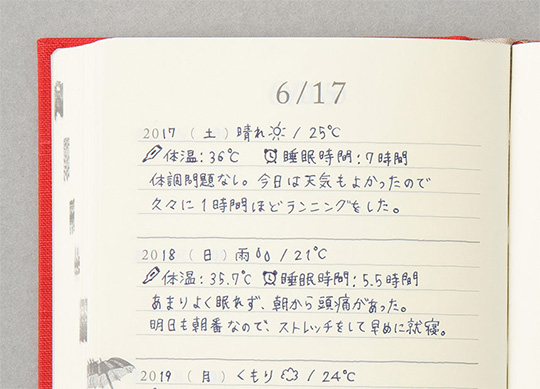 6/17
2017 (土) 晴れ / 25℃
体温:36℃ 睡眠時間:7時間
体調問題なし。今日は天気もよかったので
久々に1時間ほどランニングをした。
2018 (日) 雨 / 21℃
体温:35.7℃ 睡眠時間:5.5時間
あまりよく眠れず、朝から頭痛があった。
明日も朝番なので、ストレッチをして早めに就寝。
2019 (月) くもり / 24℃